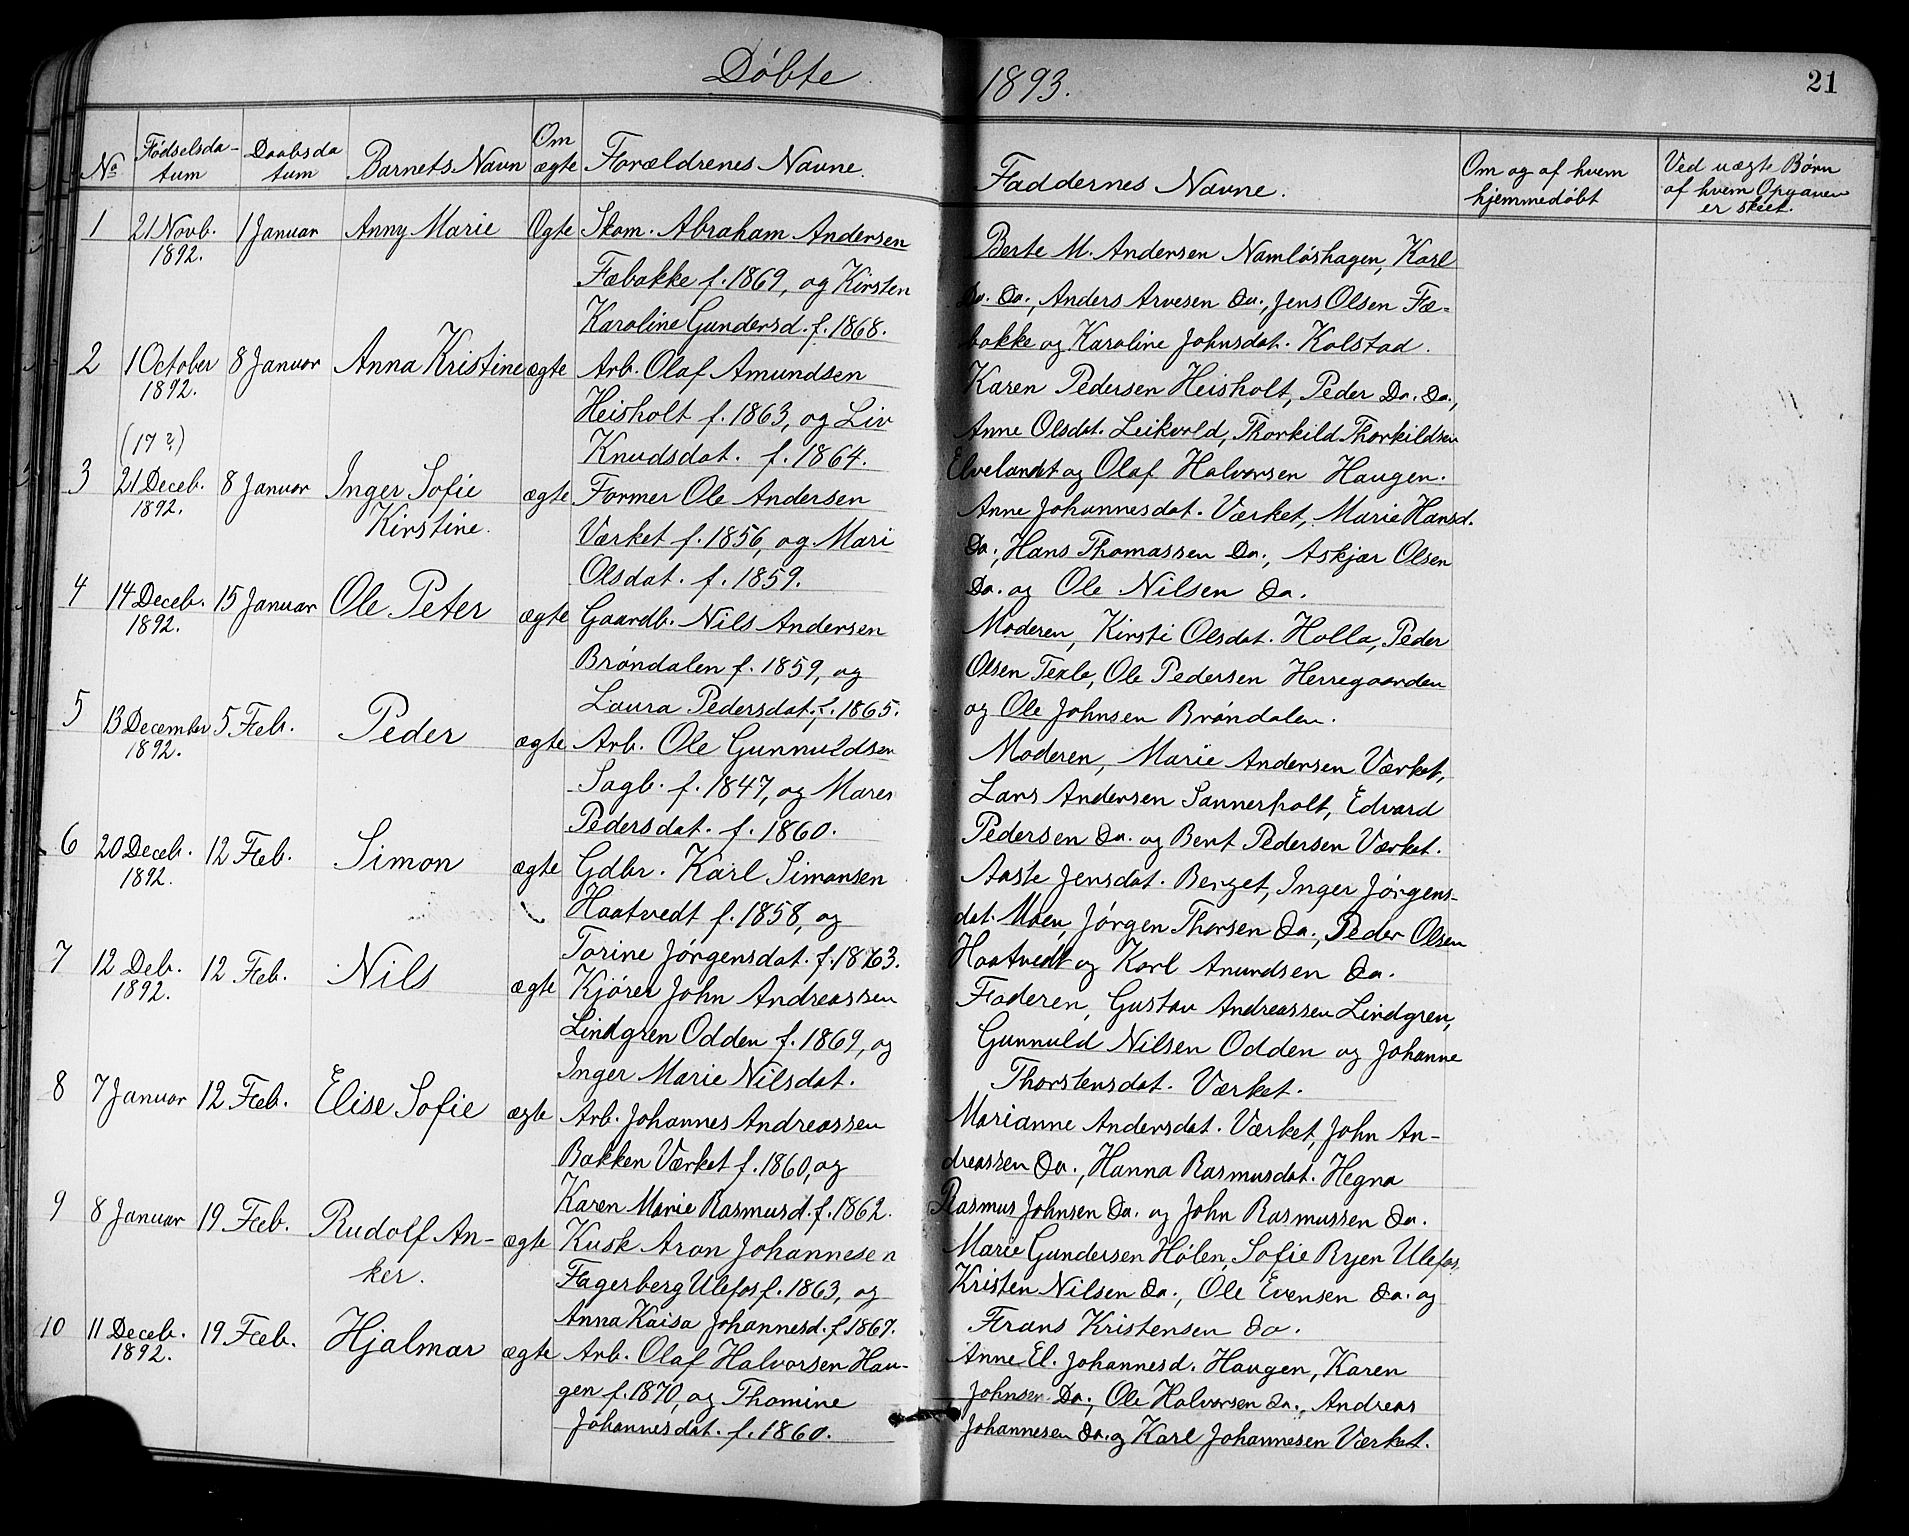 Døbte
1893.
21
No
Fødselsda-
tum
Daabsda
tum
Barnets Navn
Om
ægte
Forældrenes Navne.
Faddernes Navne.
Om og af hvem
hjemmedøbt
Ved uægte Børn
af hvem Opgaven
er skeet.
1 21 Novb. 1 Januar Anny Marie Ægte Skom. Abraham Andersen
1892.
Fæbakke f. 1869, og Kirsten
Karoline Gundersd. f. 1868.
Berte M. Andersen Namløshagen, Karl
Do. Do., Anders Arvesen Do., Jens Olsen Fæ-
bakke og Karoline Johnsdat. Kolstad.
2 1 October 8 Januar Anna Kristine ægte Arb. Olaf Amundsen
1892.
Heisholt f. 1863, og Liv
(17?)
Knudsdat. f. 1864.
Karen Pedersen Heisholt, Peder Do. Do.,
Anne Olsdat. Leikvold, Thorkild Thorkildsen
Elvelandet og Olaf Halvorsen Haugen.
3 21 Deceb. 8 Januar Inger Sofie ægte Former Ole Andersen
1892.
Kirstine.
Værket f. 1856, og Mari
Olsdat. f. 1859.
Anne Johannesdat. Værket, Marie Hansd.
Do., Hans Thomassen Do., Askjær Olsen
Do. og Ole Nilsen Do.
4 14 Deceb. 15 Januar Ole Peter ægte Gaardb. Nils Andersen
1892.
Brøndalen f. 1859, og
Laura Pedersdat. f. 1865.
Moderen, Kirsti Olsdat. Holla, Peder
Olsen Texle, Ole Pedersen Herregaarden
og Ole Johnsen Brøndalen.
5 13 December 5 Feb. Peder ægte Arb. Ole Gunnuldsen
1892.
Sagb. f. 1847, og Maren
Pedersdat. f. 1860.
Moderen, Marie Andersen Værket,
Lars Andersen Sannerholt, Edvard
Pedersen Do. og Bent Pedersen Værket.
6 20 Deceb. 12 Feb. Simon ægte Gdbr. Karl Simonsen
1892.
Haatvedt f. 1858, og
Torine Jørgensdat. f. 1863.
Aaste Jensdat. Berget, Inger Jørgens-
dat. Moen, Jørgen Thorsen Do., Peder Olsen
Haatvedt og Karl Anundsen Do.
7 12 Deb. 12 Feb. Nils ægte Kjører John Andreassen
1892.
Lindgren Odden f. 1869, og
Inger Marie Nilsdat.
Faderen, Gustav Andreassen Lindgren,
Gunnuld Nilsen Odden og Johanne
Thorstensdat. Værket.
8 7 Januar 12 Feb. Elise Sofie ægte Arb. Johannes Andreassen
Bakken Værket f. 1860, og
Karen Marie Rasmusd. f. 1862.
Marianne Andersdat. Værket, John An-
dreassen Do., Hanna Rasmusdat. Hegna
Rasmus Johnsen Do. og John Rasmussen Do.
9 8 Januar 19 Feb. Rudolf An- ægte Kusk Aron Johannesen
ker.
Fagerberg Ulefos f. 1863, og
Anna Kaisa Johannesd. f. 1867.
Marie Gundersen Hølen, Sofie Ryen Ulefos,
Kristen Nilsen Do., Ole Evensen Do. og
Frans Kristensen Do.
10 11 Deceb. 19 Feb. Hjalmar ægte Arb. Olaf Halvorsen Hau-
1892.
gen f. 1870, og Thomine
Johannesdat. f. 1860.
Anne El. Johannesd. Haugen, Karen
Johnsen Do., Ole Halvorsen Do., Andreas
Johannesen Do. og Karl Johannesen Værket.